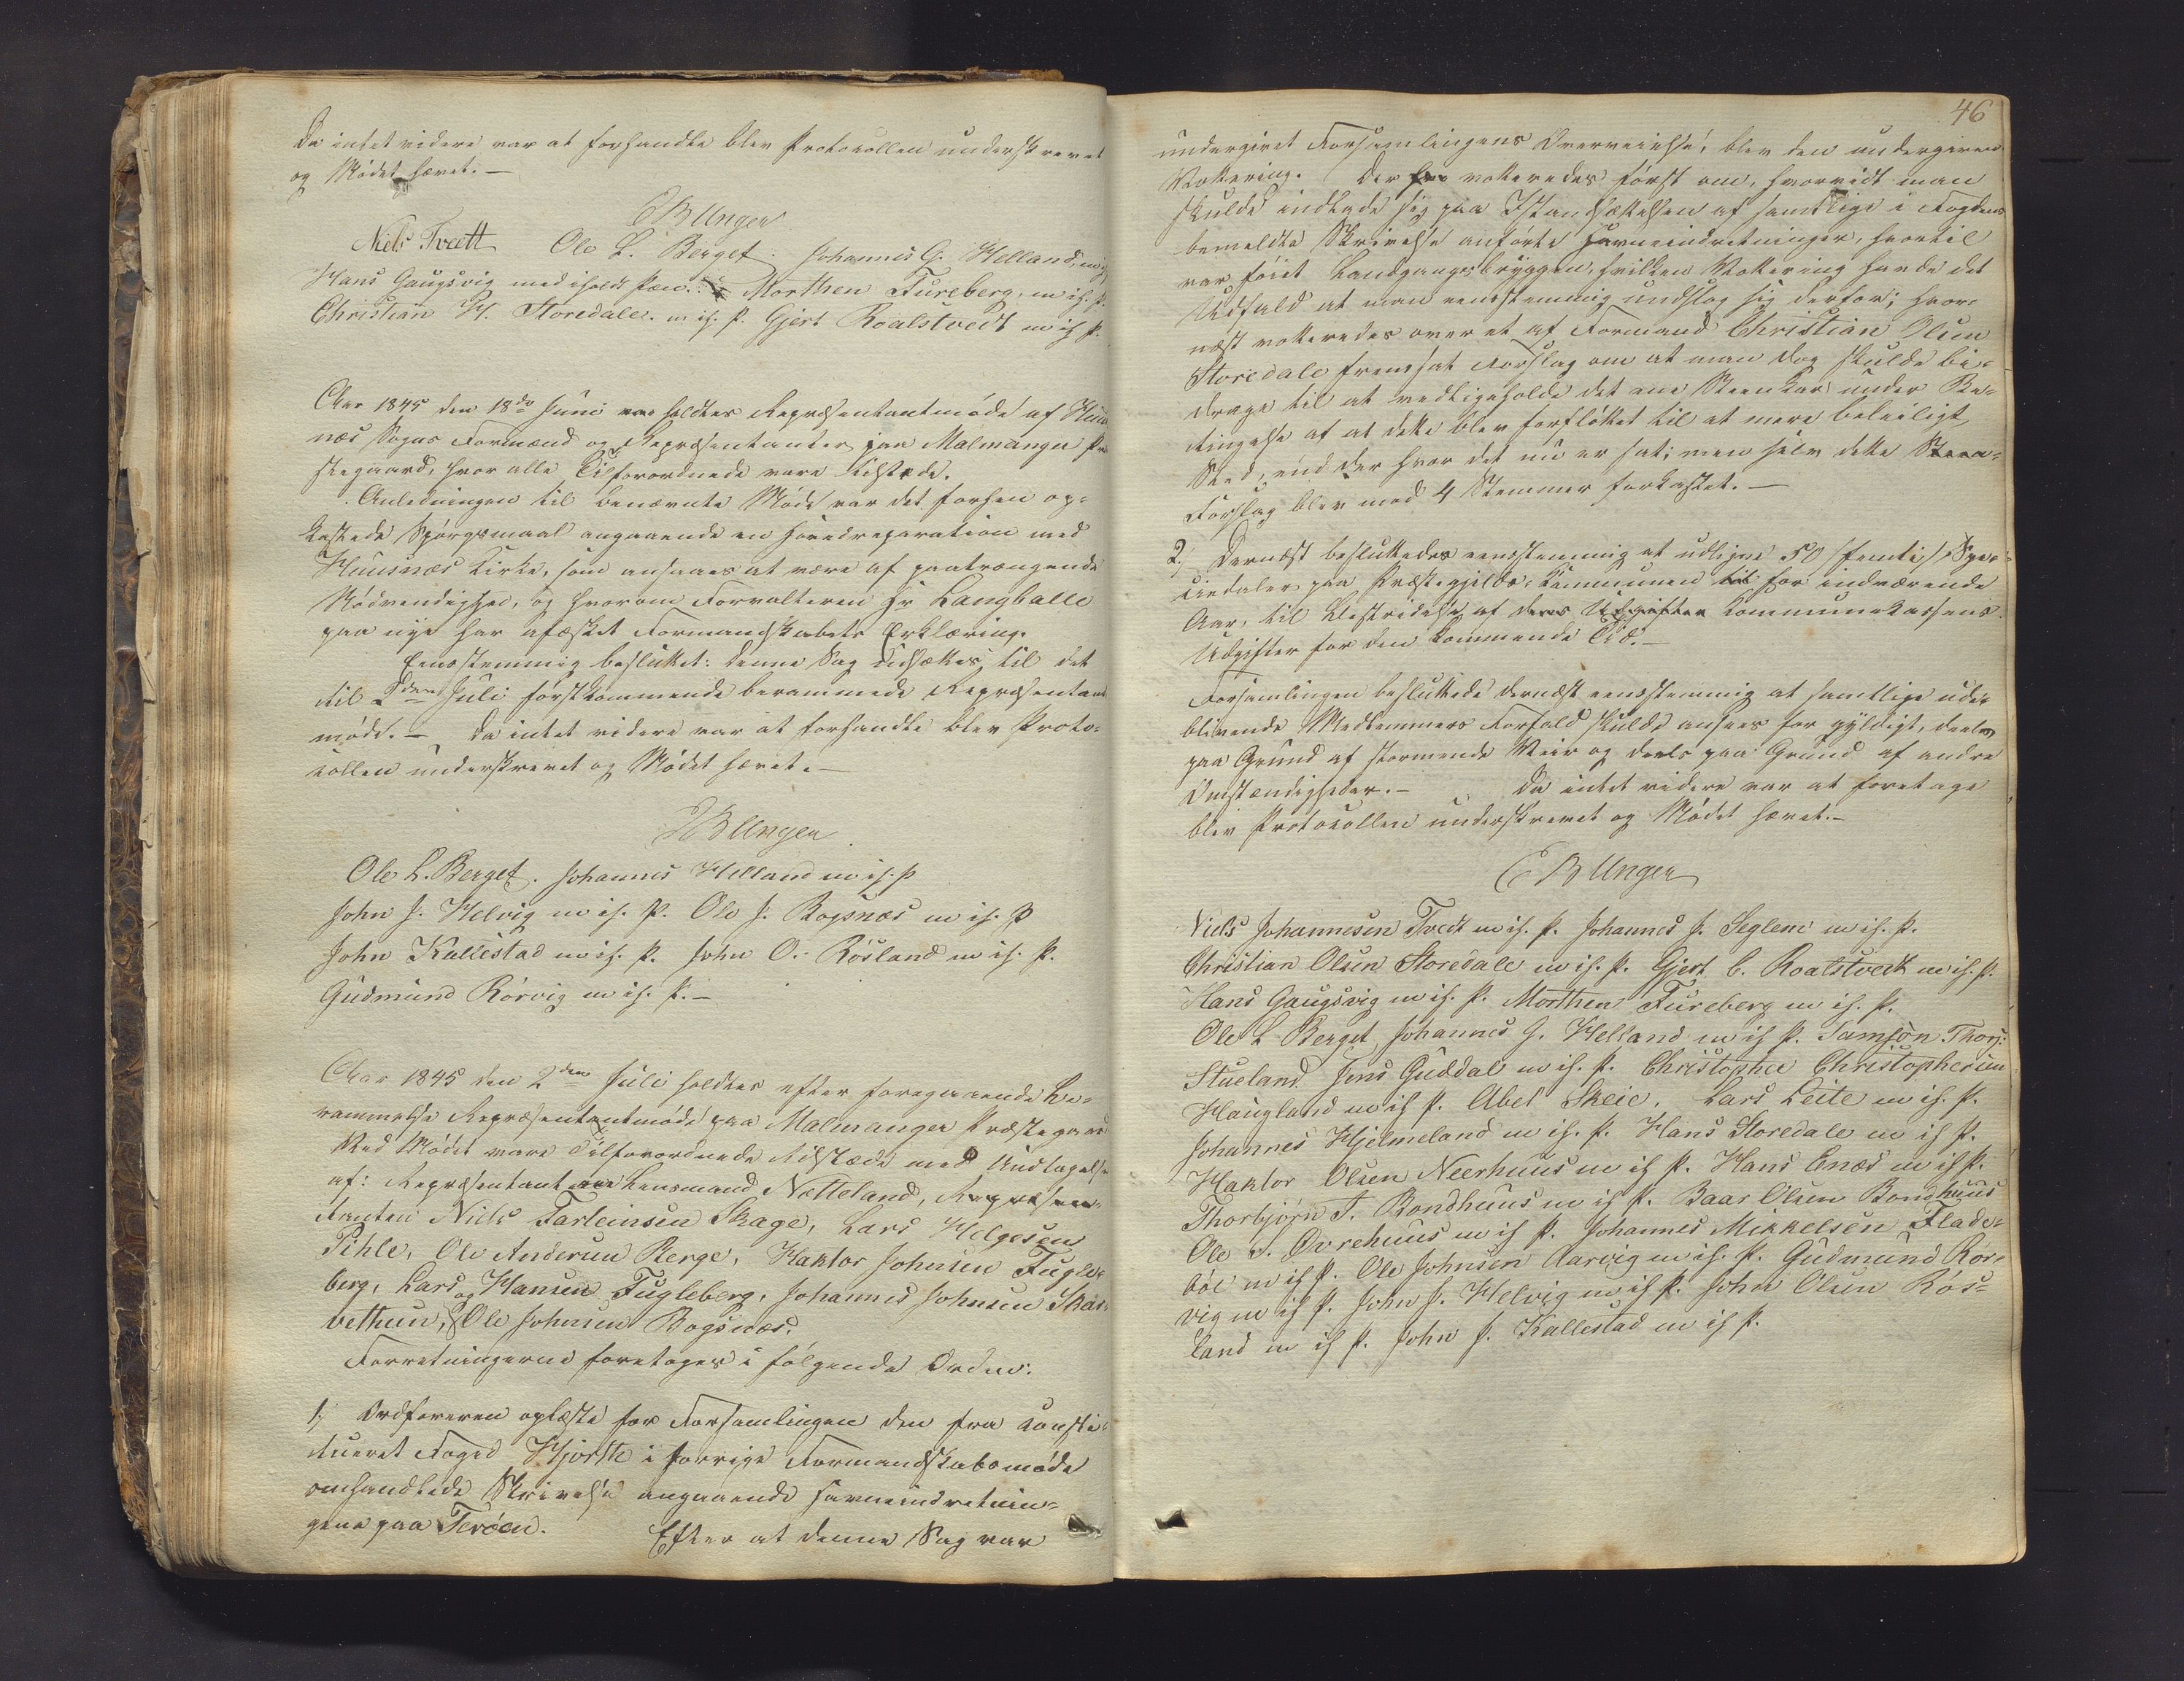 Da intet videre var at forhandle blev Protocollen underskrevet
og Mødet hævet. —
E B Unger
Niels Tvedt Ole L. Berget. Johannes G. Helland, m i
Hans Gaugsvig med iholdt Pen. Morthen Fureberg, m ih. P.
Christian H. Storedale. m ih. P. Gjert Roalstvedt m ih P.
Aar 1845 den 18de Juni holdtes Repræsentantmøde af Huus
næs Sogns Formænd og Repræsentanter paa Malmanger Præ
stegaard, hvor alle Tilforordnede vare tilstede.
Anledningen til benævnte Møde var det forhen op-
kastede Spørgsmaal angaaende en Hovedreparation med
Huusnæs Kirke, som ansaaes at være af paatrængende
Nødvendighed, og hvorom Forvalteren Hr Langballe
paa nye har afæsket Formandskabets Erklæring.
Eensstemmig besluttet: denne Sag udsættes til det
til 2den Juli førstkommende berammede Repræsentant
møde. — Da intet videre var at forhandle blev Proto-
collen underskrevet og Mødet hævet. —
E B Unger
Ole L. Berget. Johannes Helland m ih. P
John J. Helvig m ih. P. Ole J. Bogsnæs m ih. P
John Kallestad m ih. P. John O. Røsland m ih. P.
Gudmund Rørvig m ih. P. —
Aar 1845 den 2den Juli holdtes efter foregaaende Be-
rammelse Repræsentantmøde paa Malmanger Præstegaard
Ved Mødet vare Tilforordnede tilstæde med Undtagelse
af: Repræsentant Lensmand Nætteland, Repræsen-
tanten Niels Tarleinsen Skage, Lars Helgesen
Pihle, Ole Andersen Berge, Haktor Johnsen Fugle-
berg, Lars Hansen Fugleberg, Johannes Johnsen Skar-
vethun, og Ole Johnsen Bogsnæs.
Forretningerne foretoges i følgende Orden:
1, Ordføreren oplæste for Forsamlingen den fra consti-
tueret Foged Hjorth i forrige Formandskabsmøde
omhandlede Skrivelse angaaende Havneindretnin-
gene paa Terøen. Efter at denne Sag var
46
undergivet Forsamlingens Overveielse, blev den undergiven
Vottering. Der votteredes først om, hvorvidt man
skulde indlade sig paa Istandsættelsen af samtlige i Fogdens
bemeldte Skrivelse anførte Havneindretninger, hvortil
var føiet Landgangsbryggen, hvilken Vottering havde det
Udfald at man eensstemmig undslog sig derfor; hvor-
næst votteredes over et af Formand Christian Olsen
Storedale fremsat Forslag om at man dog skulde bi-
drage til at vedligeholde det ene Steenkar under Be-
tingelse af at dette blev forflöttet til et mere beleiligt
Sted, end der hvor det nu er sat; men selv dette
Forslag blev med 4 Stemmer forkastet. —
2, Dernæst besluttedes eensstemmig at udligne 50 /femti/ Spe-
ciedaler paa Præstegjelds-Kommunen for indeværende
Aar, til Bestridelse af deres Udgifter Kommunekassens
Udgifter for den kommende Tid. —
Forsamlingen besluttede dernæst eensstemmig at samtlige ude-
blivende Medlemmers Forfald skulde ansees for gyldigt, deels
paa Grund af stormende Veir og deels paa Grund af andre
Omstændigheder. — Da intet videre var at foretage
blev Protocollen underskrevet og Mødet hævet. —
E B Unger
Niels Johannesen Tvedt m ih. P. Johannes J. Seglem m ih. P.
Christian Olsen Storedale m ih. P. Gjert C. Roalstvedt m ih. P.
Hans Gaugsvig m ih. P. Morthen Fureberg m ih. P.
Ole L Berget, Johannes G. Helland m ih P. Samson Thors:
Stueland Jens Guddal m ih. P. Christopher Christophersen
Haugland m ih P. Abel Skeie. Lars Leite m ih. P.
Johannes Hjelmeland m ih. P. Hans Storedale m ih P.
Haktor Olsen Neerhuus m ih P. Hans Enæs m ih P.
Thorbjørn T. Bondhuus m ih P. Baar Olsen Bondhuus
Ole Ovrehuus m ih P. Johannes Mikkelsen Flade-
bøe m ih P. Ole Johnsen Aarvig m ih. P. Gudmund Rør-
vig m ih P. John J. Helvig m ih P. John Olsen Røs-
land m ih P. John J. Kallestad m ih P.